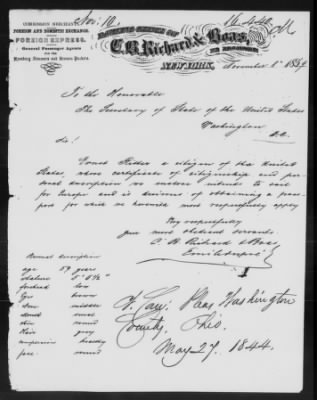 Nov. 10.
16440
COMMISSION MERCHANTS
FOREIGN AND DOMESTIC EXCHANGE.
FOREIGN EXPRESS.
General Passenger Agents
for the
Hamburg, Bremen and Havre Packets.
BANKING OFFICE OF
C. B. Richard & Boas,
NEW YORK,
November 8th 1859
To the Honorable
The Secretary of State of the United States
Washington
D.C.
Sir!
a citizen of the United
States, whose certificates of citizenship and per-
sonal description we enclose intends to sail
for Europe and is desirous of obtaining a pass-
port for which we herewith most respectfully apply
Very respectfully
your most obedient servants
C. B. Richard & Boas
Personal description
age 59 years
Stature 5" 6½"
forehead low
Eyes brown
nose middle
mouth small
chin round
Hair grey
complexion healthy
face round
Washington
County, Ohio.
May 27. 1844.